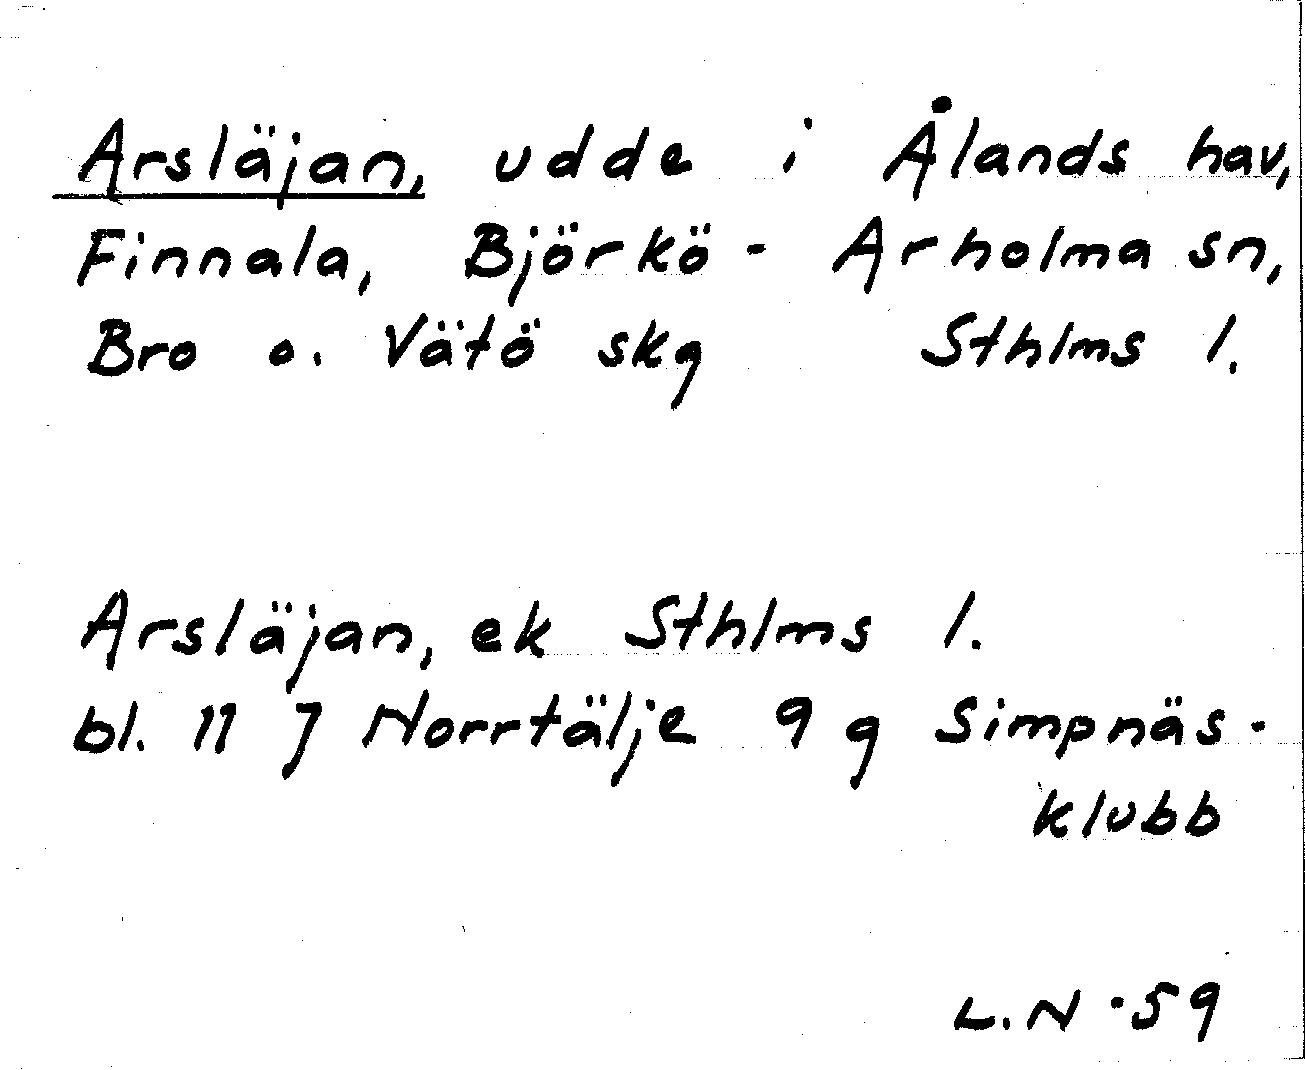 Arsläjan, udde i Ålands hav,
Finnala, Björkö - Arholma sn,
Bro o. Vätö skg Sthlms l.
Arsläjan, ek Sthlms l.
bl. 11 J Norrtälje 9 g Simpnäs-
klubb
L.N -59